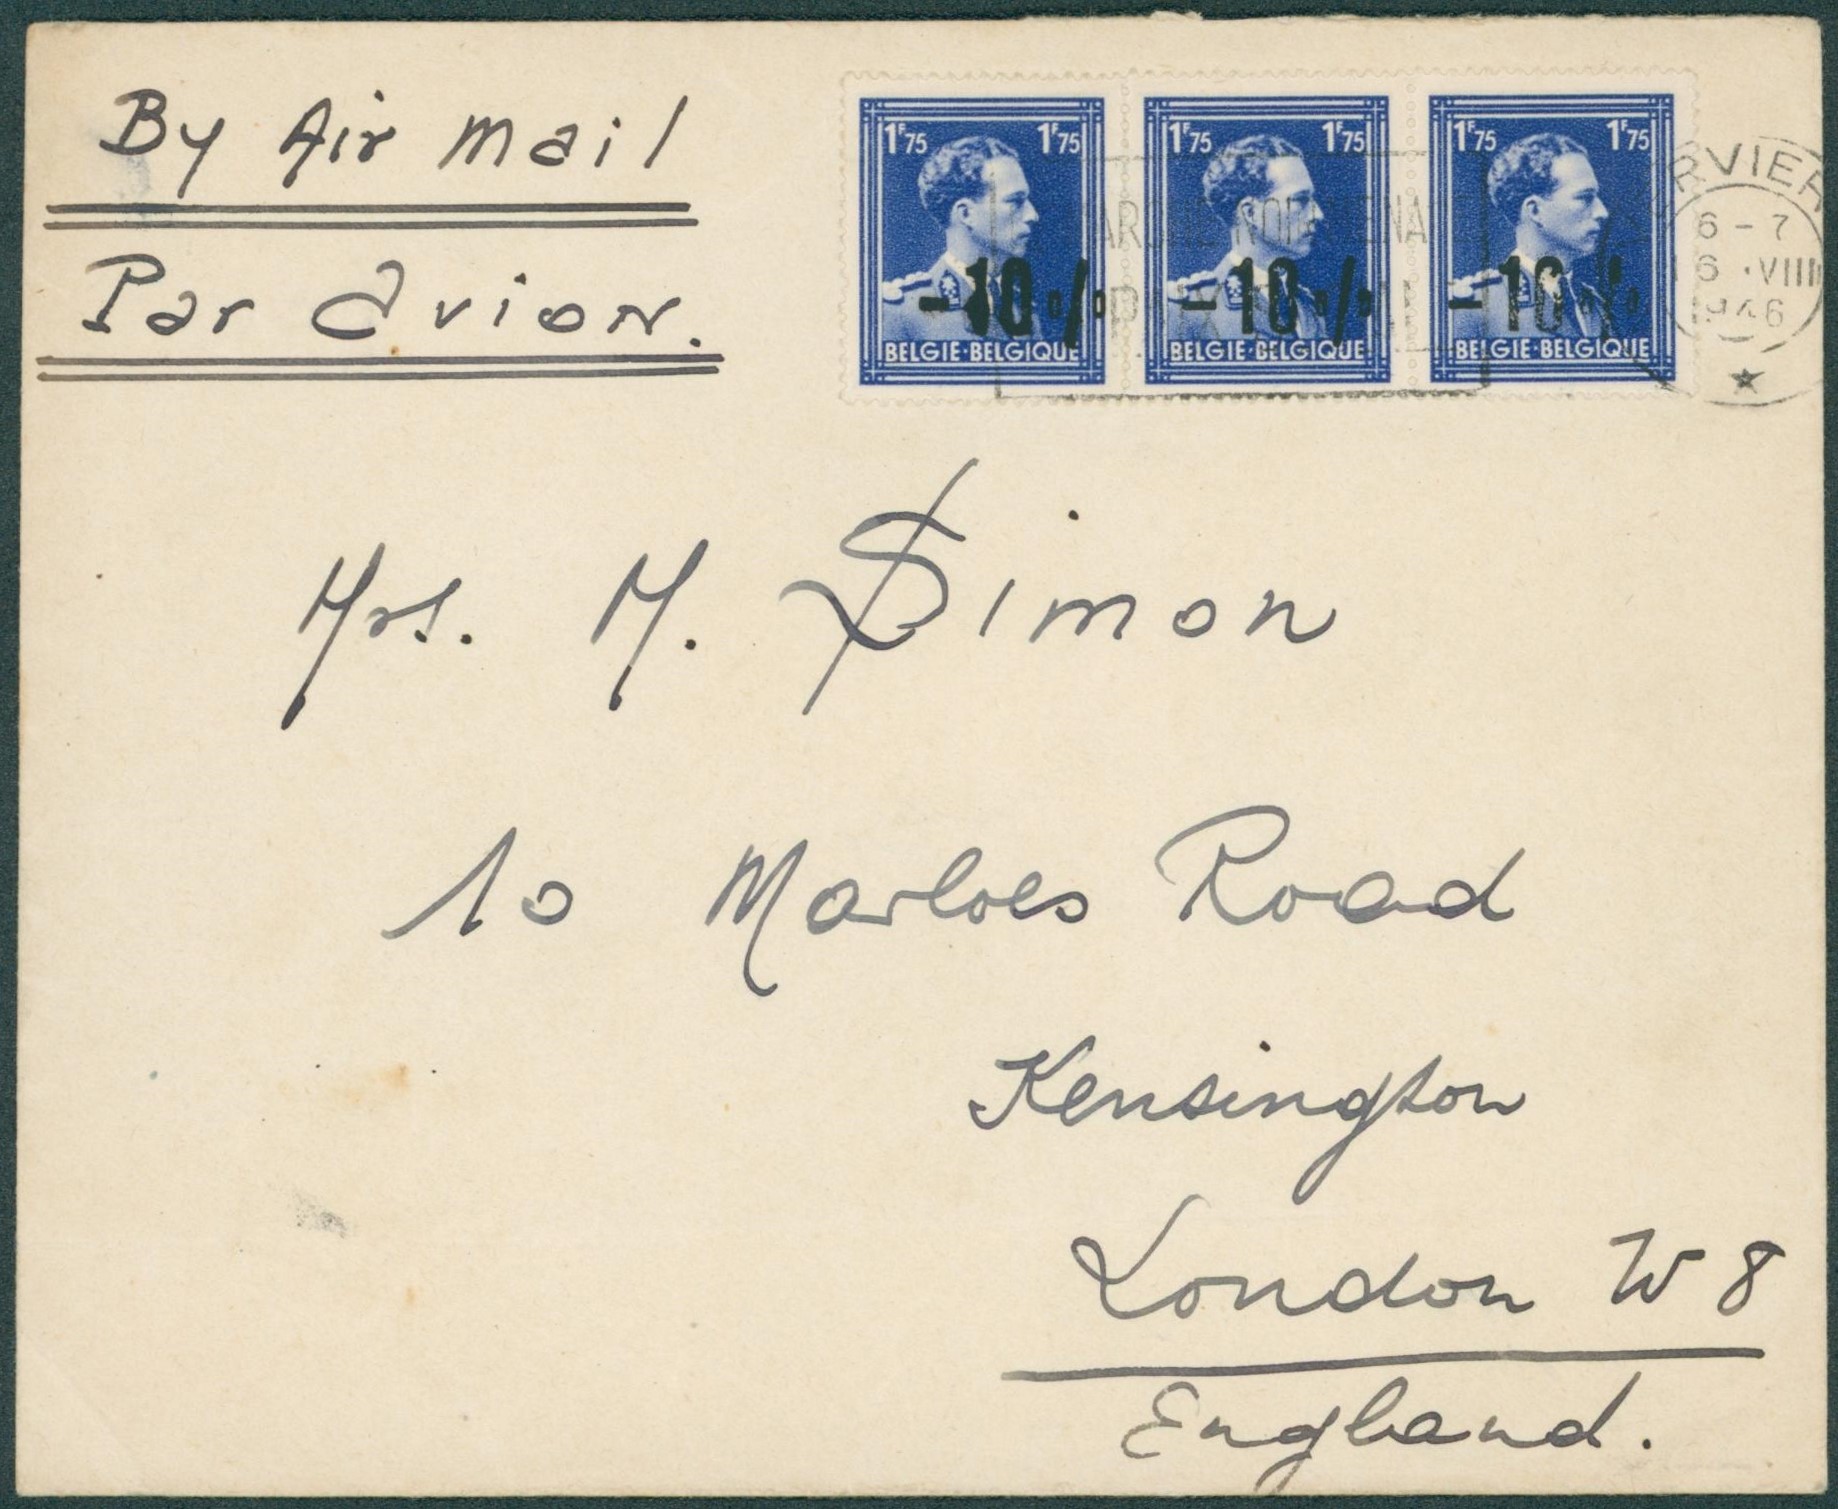 By Air Mail
Par Avion.
1F75 1F75 1F75 1F75 1F75 1F75
-10% -10% -10%
BELGIE·BELGIQUE BELGIE·BELGIQUE BELGIE·BELGIQUE
RVIER
6-7
6 ·VIII
1946
Mrs. M. Simon
10 Marloes Road
Kensington
London W 8
England.